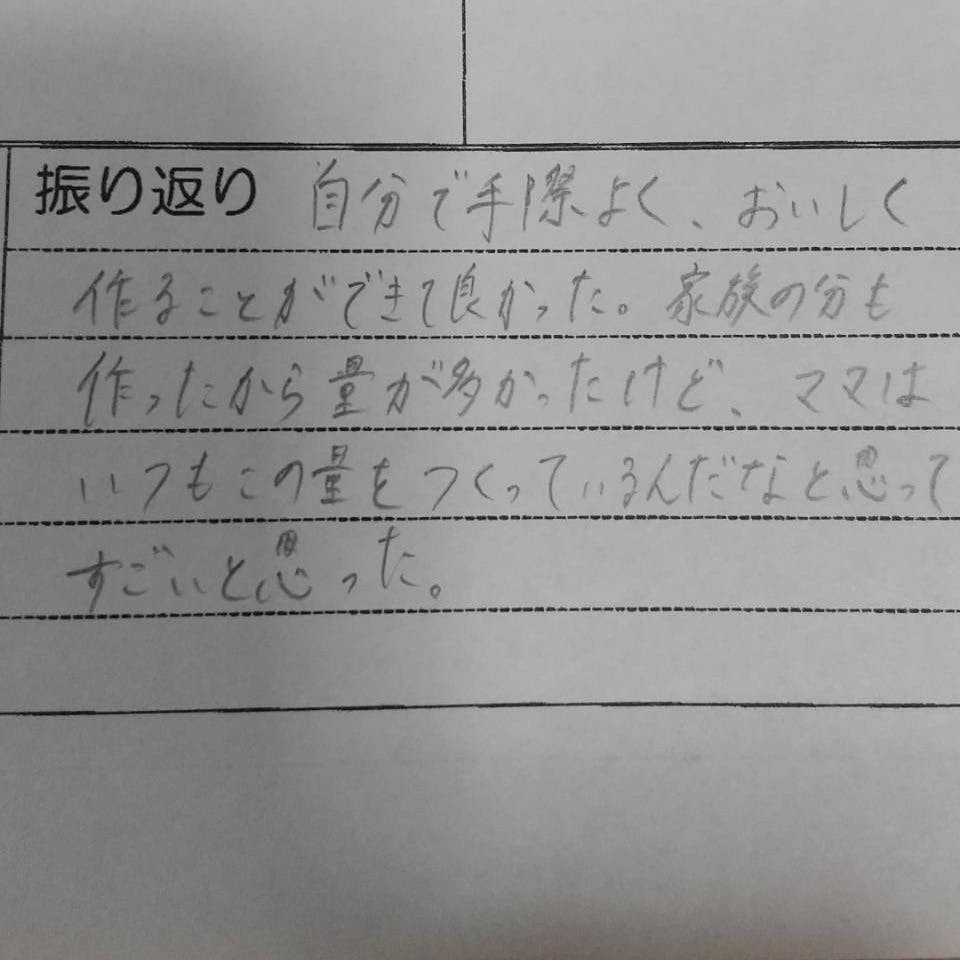 振り返り 自分で手際よく、おいしく
作ることができて良かった。家族の分も
作ったから量が多かったけど、ママは
いつもこの量をつくっているんだなと思って
すごいと思った。